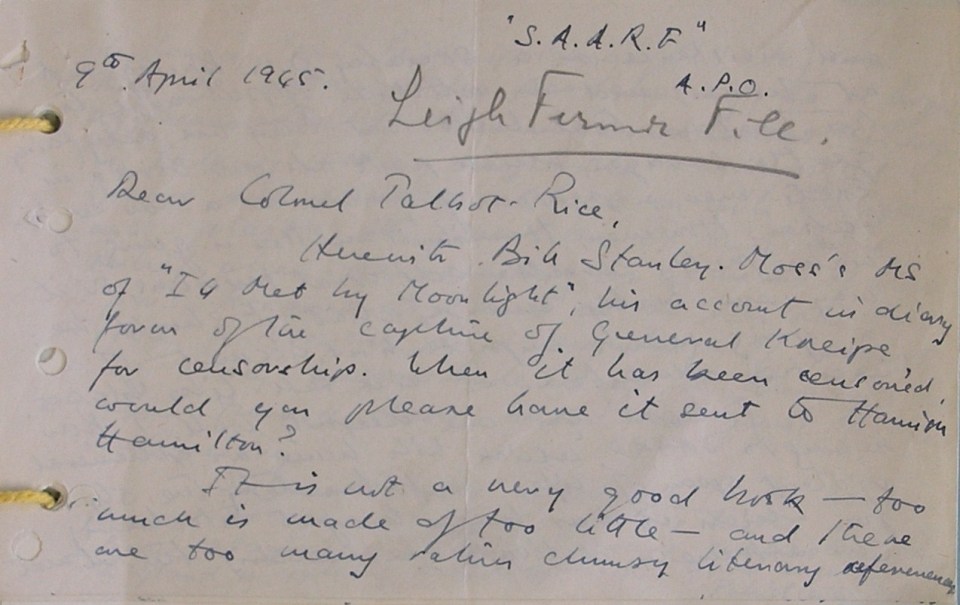 "S.A.A.R.F"
9th April 1945.
A.P.O.
Leigh Fermor File.
Dear Colonel Talbot-Rice,
Herewith Bill Stanley-Moss's MS
of "Ill Met by Moonlight", his account in diary
form of the capture of General Kreipe
for censorship. When it has been censored,
would you please have it sent to Hamish
Hamilton?
It is not a very good book — too
much is made of too little — and there
are too many rather clumsy literary references